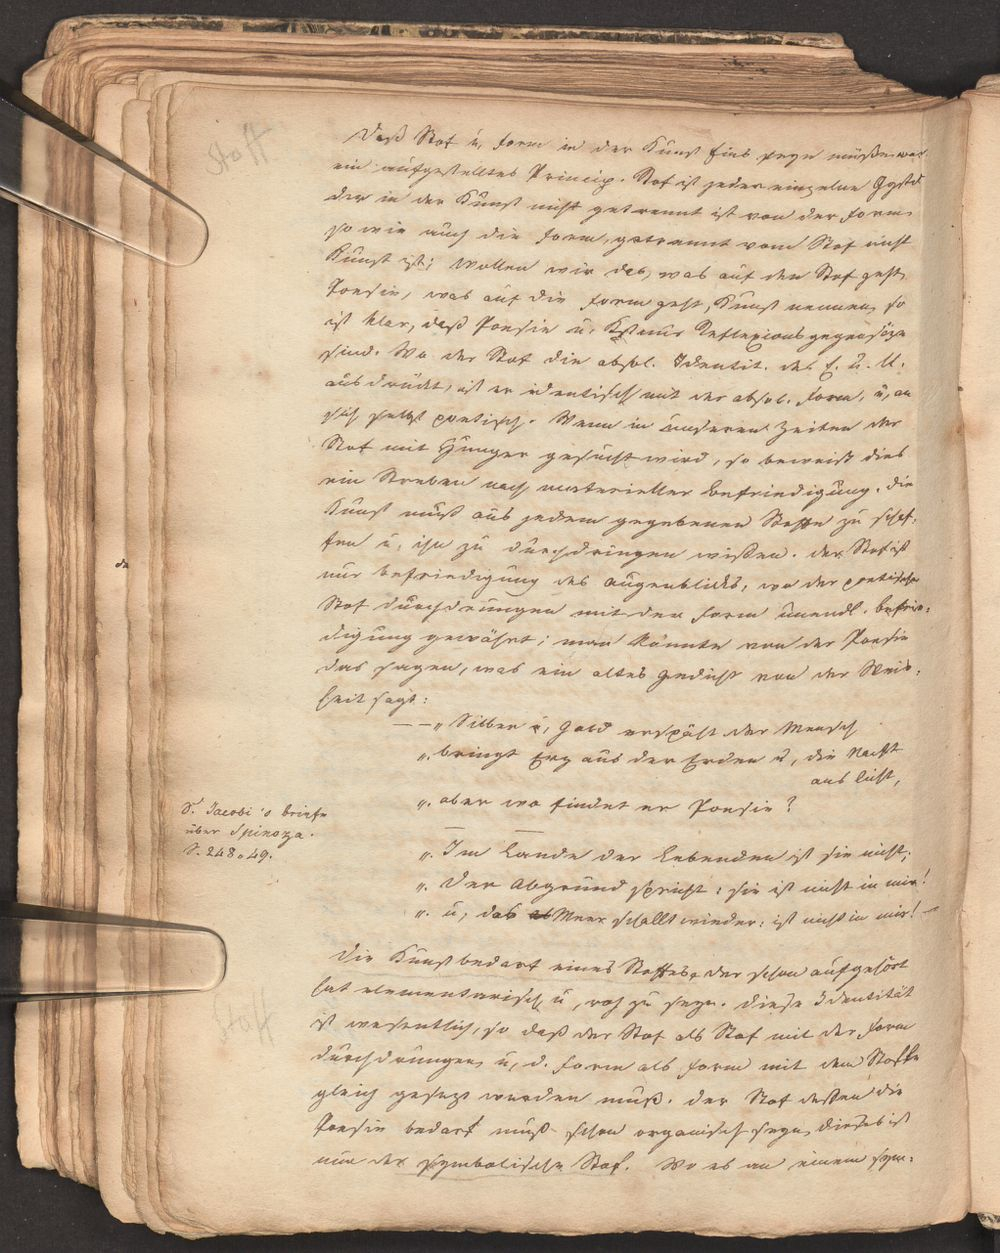 Stoff
Daß Stof u, Form in der Kunst Eins seyn müße, war
ein aufgestelltes Princip. Stof ist jeder einzelne Ggstd
der in der Kunst nicht getrennt ist von der Form,
so wie auch die Form, getrennt vom Stof nicht
Kunst ist; Wollen wir das, was auf den Stof geht,
Poesie, was auf die Form geht, Kunst nennen, so
ist klar, daß Poesie u. Kst nur Reflexionsgegensäze
sind. Wo der Stof die absol. Identit. des E. u. U.
ausdrückt, ist er identisch mit der absol. Form, u, an
sich selbst poetisch. Wenn in unseren Zeiten der
Stof mit Hunger gesucht wird, so beweißt dies
ein Streben nach materieller Befriedigung. Die
Kunst muß aus jedem gegebenen Stoffe zu schöp-
fen u, ihn zu durchdringen wißen. Der Stof ist
nur Befriedigung des Augenblicks, wo der poetische
Stof durchdrungen mit der Form unendl. Befrie-
digung gewährt; man könnte von der Poesie
das sagen, was ein altes Gedicht von der Weis-
heit sagt:
— — „ Silber u, Gold erspäht der Mensch
„. bringt Erz aus der Erden u, die Nacht
ans Licht,
„. aber wo findet er Poesie?
S. Jacobi's Briefe
über Spinoza.
S. 248. 49.
„. Im Lande der Lebenden ist sie nicht;
„. Der Abgrund spricht: sie ist nicht in mir!
„. u, das Meer schallt wieder: ist nicht in mir! —
Stoff
Die Kunst bedarf eines Stoffes, der schon aufgehört
hat elementarisch u, roh zu seyn. Diese Identität
ist wesentlich, so daß der Stof als Stof mit der Form
durchdrungen, u, d. Form als Form mit dem Stoffe
gleich gesezt werden muß. Der Stof deßen die
Poesie bedarf muß schon organisch seyn, dieses ist
nur der symbolische Stof. Wo es an einem sym-